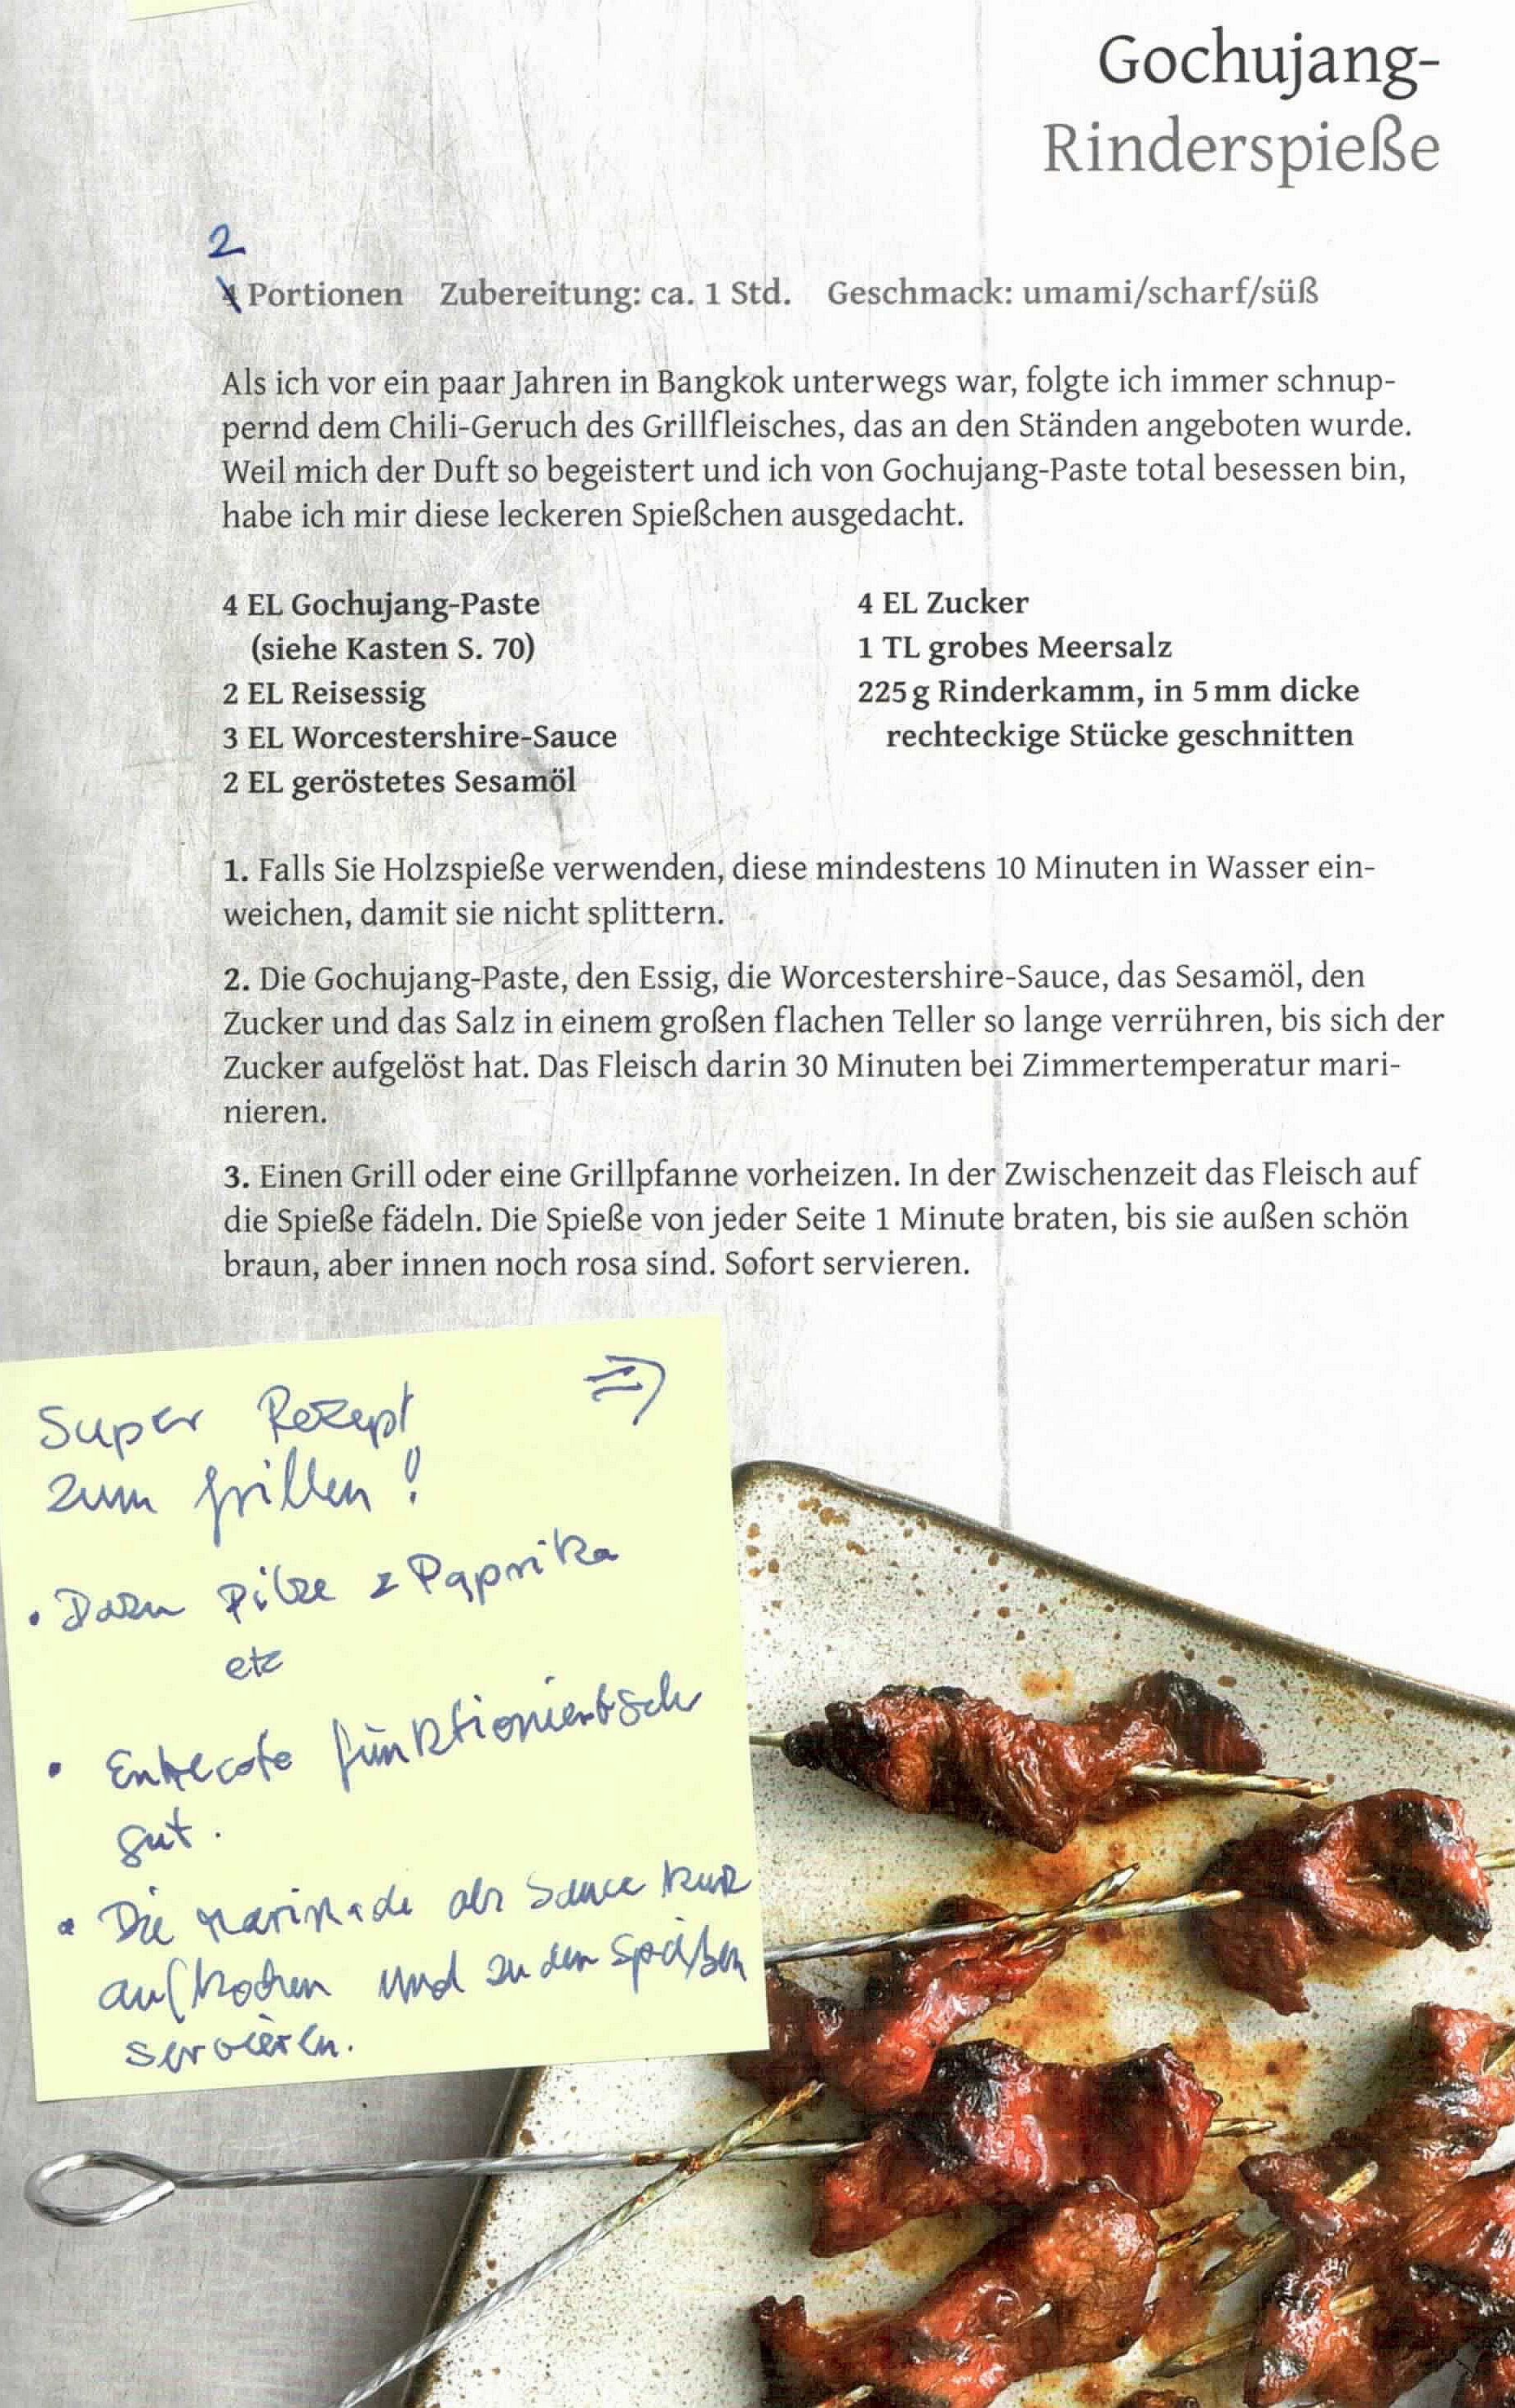 Gochujang-
Rinderspieße
2
4 Portionen Zubereitung: ca. 1 Std. Geschmack: umami/scharf/süß
Als ich vor ein paar Jahren in Bangkok unterwegs war, folgte ich immer schnup-
pernd dem Chili-Geruch des Grillfleisches, das an den Ständen angeboten wurde.
Weil mich der Duft so begeistert und ich von Gochujang-Paste total besessen bin,
habe ich mir diese leckeren Spießchen ausgedacht.
4 EL Gochujang-Paste
(siehe Kasten S. 70)
2 EL Reisessig
3 EL Worcestershire-Sauce
2 EL geröstetes Sesamöl
4 EL Zucker
1 TL grobes Meersalz
225 g Rinderkamm, in 5 mm dicke
rechteckige Stücke geschnitten
1. Falls Sie Holzspieße verwenden, diese mindestens 10 Minuten in Wasser ein-
weichen, damit sie nicht splittern.
2. Die Gochujang-Paste, den Essig, die Worcestershire-Sauce, das Sesamöl, den
Zucker und das Salz in einem großen flachen Teller so lange verrühren, bis sich der
Zucker aufgelöst hat. Das Fleisch darin 30 Minuten bei Zimmertemperatur mari-
nieren.
3. Einen Grill oder eine Grillpfanne vorheizen. In der Zwischenzeit das Fleisch auf
die Spieße fädeln. Die Spieße von jeder Seite 1 Minute braten, bis sie außen schön
braun, aber innen noch rosa sind. Sofort servieren.
Super Rezept =)
zum grillen!
• Dazu Pilze & Paprika
etc
• Entrecote funktioniert sehr
gut.
• Die Marinade als Sauce kurz
aufkochen und zu den Spießen
servieren.